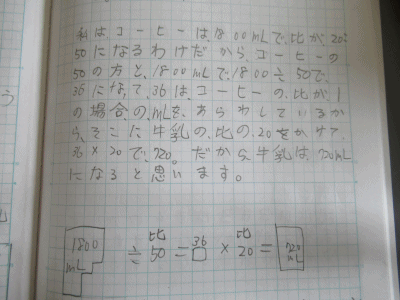 私はコーヒーは、1800mLで、比が、20:
50になるわけだから、コーヒーの
50の方と、1800mLで、1800÷50で、
36になって、36は、コーヒーの、比が、1
の場合の、mLを、あらわしているか
ら、そこに牛乳の、比の、20をかけて、
36×20で、720。だから、牛乳は、720mL
になると思います。
1800mL ÷ 比50 = 36□ × 比20 = 720mL